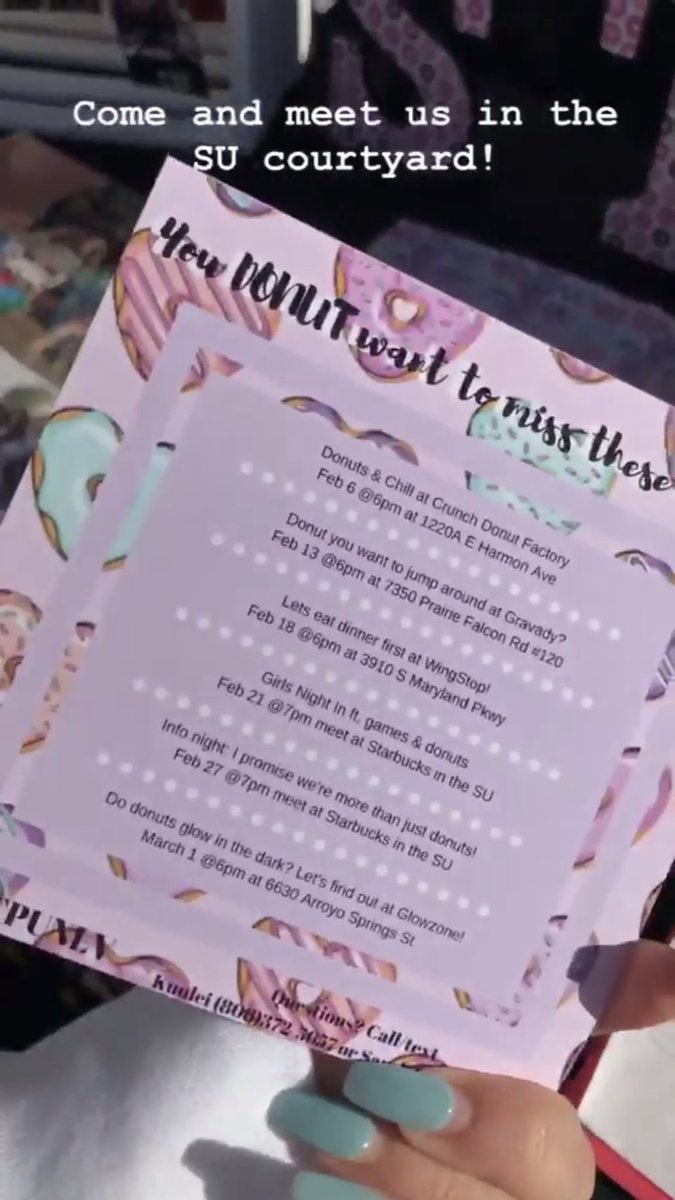 Come and meet us in the
SU courtyard!
You DONUT want to miss these
Donuts & Chill at Crunch Donut Factory
Feb 6 @6pm at 1220A E Harmon Ave
Donut you want to jump around at Gravady?
Feb 13 @6pm at 7350 Prairie Falcon Rd #120
Lets eat dinner first at WingStop!
Feb 18 @6pm at 3910 S Maryland Pkwy
Girls Night In ft. games & donuts
Feb 21 @7pm meet at Starbucks in the SU
Info night: I promise we're more than just donuts!
Feb 27 @7pm meet at Starbucks in the SU
Do donuts glow in the dark? Let's find out at Glowzone!
March 1 @6pm at 6630 Arroyo Springs St
Questions? Call/text
(808)372 5657 or